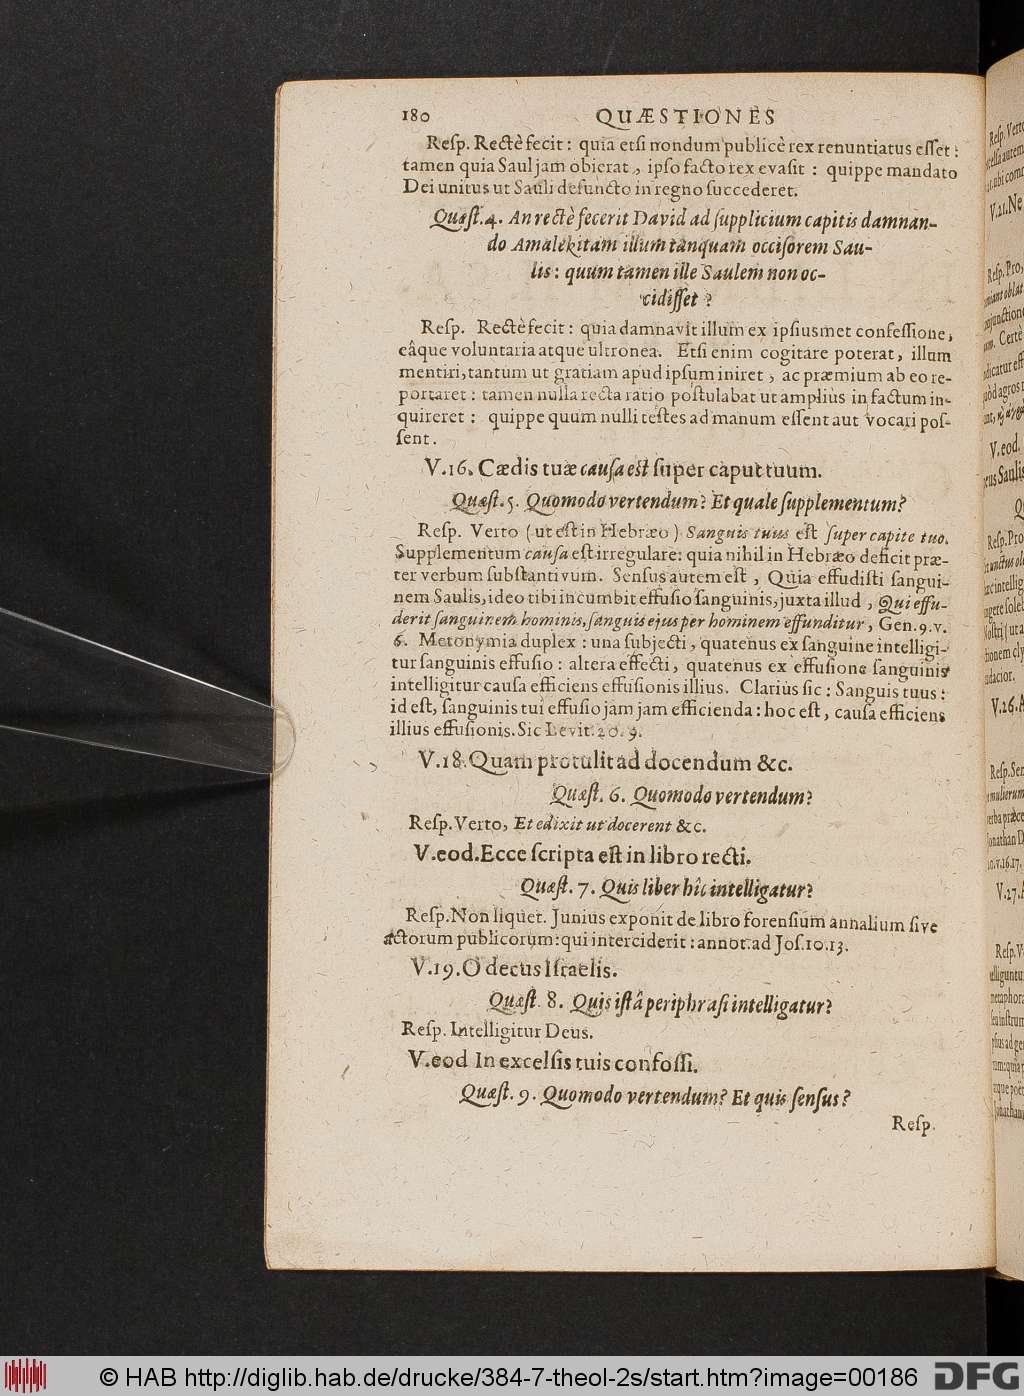 180 QUÆSTIONES
Reſp. Rectè fecit: quia etſi nondum publicè rex renuntiatus eſſet:
tamen quia Saul jam obierat, ipſo facto rex evaſit: quippe mandato
Dei unitus ut Sauli defuncto in regno ſuccederet.
Quæſt. 4. An rectè fecerit David ad ſupplicium capitis damnan-
do Amalekitam illum tanquam occiſorem Sau-
lis: quum tamen ille Saulem non oc-
cidiſſet?
Reſp. Rectè fecit: quia damnavit illum ex ipſiusmet confeſſione,
eâque voluntaria atque ultronea. Etſi enim cogitare poterat, illum
mentiri, tantùm ut gratiam apud ipſum iniret, ac præmium ab eo re-
portaret: tamen nulla recta ratio poſtulabat ut ampliùs in factum in-
quireret: quippe quum nulli teſtes ad manum eſſent aut vocari poſ-
ſent.
V.16. Cædis tuæ cauſa eſt ſuper caput tuum.
Quæſt. 5. Quomodo vertendum? Et quale ſupplementum?
Reſp. Verto (ut eſt in Hebræo) Sanguis tuus eſt ſuper capite tuo.
Supplementum cauſa eſt irregulare: quia nihil in Hebræo deficit præ-
ter verbum ſubſtantivum. Senſus autem eſt, Quia effudiſti ſangui-
nem Saulis, ideo tibi incumbit effuſio ſanguinis, juxta illud, Qui effu-
derit ſanguinem hominis, ſanguis ejus per hominem effunditur, Gen. 9. v.
6. Metonymia duplex: una ſubjecti, quatenus ex ſanguine intelligi-
tur ſanguinis effuſio: altera effecti, quatenus ex effuſione ſanguinis
intelligitur cauſa efficiens effuſionis illius. Clariùs ſic: Sanguis tuus:
id eſt, ſanguinis tui effuſio jam jam efficienda: hoc eſt, cauſa efficiens
illius effuſionis. Sic Levit. 20. 9.
V.18. Quam protulit ad docendum &c.
Quæſt. 6. Quomodo vertendum?
Reſp. Verto, Et edixit ut docerent &c.
V.eod. Ecce ſcripta eſt in libro recti.
Quæſt. 7. Quis liber hîc intelligatur?
Reſp. Non liquet. Junius exponit de libro forenſium annalium ſive
actorum publicorum: qui interciderit: annot. ad Joſ. 10. 13.
V.19. O decus Iſraelis.
Quæſt. 8. Quis iſtâ periphraſi intelligatur?
Reſp. Intelligitur Deus.
V.eod In excelſis tuis confoſſi.
Quæſt. 9. Quomodo vertendum? Et quis ſenſus?
Reſp.
© HAB http://diglib.hab.de/drucke/384-7-theol-2s/start.htm?image=00186
DFG